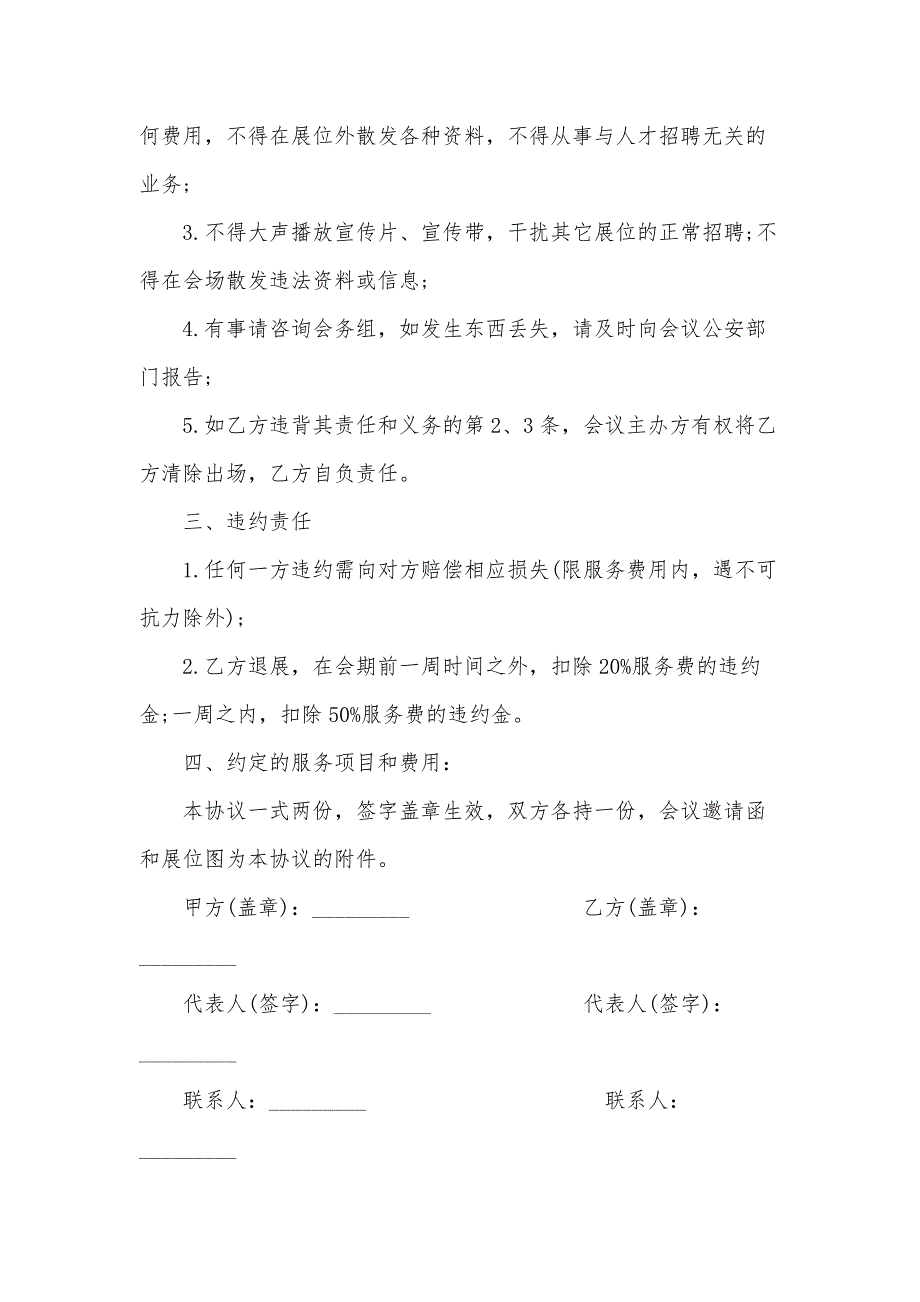 何费用，不得在展位外散发各种资料，不得从事与人才招聘无关的
业务;
3.不得大声播放宣传片、宣传带，干扰其它展位的正常招聘;不
得在会场散发违法资料或信息;
4.有事请咨询会务组，如发生东西丢失，请及时向会议公安部
门报告;
5.如乙方违背其责任和义务的第2、3条，会议主办方有权将乙
方清除出场，乙方自负责任。
三、违约责任
1.任何一方违约需向对方赔偿相应损失(限服务费用内，遇不可
抗力除外);
2.乙方退展，在会期前一周时间之外，扣除20%服务费的违约
金;一周之内，扣除50%服务费的违约金。
四、约定的服务项目和费用：
本协议一式两份，签字盖章生效，双方各持一份，会议邀请函
和展位图为本协议的附件。
甲方(盖章)：_________ 乙方(盖章)：
_________
代表人(签字)：_________ 代表人(签字)：
_________
联系人：_________ 联系人：
_________